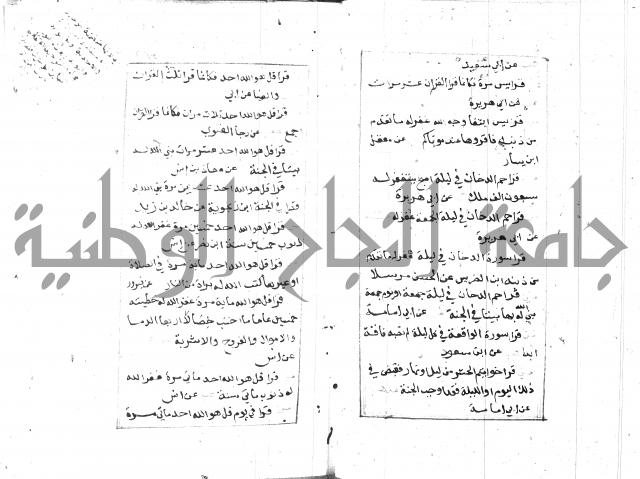 عن أبي سعيد
قرا يس مرة فكانما قرا القران عشر مرات
عن ابي هريرة
قرا يس ابتغا وجه الله غفر له ما تقدم
من ذنبه فاقروها عند موتاكم عن معقل
ابن يسار
قرا حم الدخان في ليلة اصبح يستغفر له
سبعون الف ملك عن ابي هريرة
قرا حم الدخان في ليلة الجمعة غفر له
عن ابي هريرة
قرا سورة الدخان في ليلة غفر له ما تقدم
من ذنبه ابن الضريس عن الحسن مرسلا
قرا حم الدخان في ليلة جمعة او يوم جمعة
بنى الله له بها بيتا في الجنة عن ابي امامة
قرا سورة الواقعة في كل ليلة لم تصبه فاقة
ابدا عن ابن مسعود
قرا خواتيم الحشر من ليل او نهار فقبض في
ذلك اليوم او الليلة فقد اوجب الجنة
عن ابي امامة
قرا قل هو الله احد فكانما قرا ثلث القران
والضيا عن ابي
قرا قل هو الله احد ثلاث مرات فكانما قرا القران
اجمع عن رجا الغنوي
قرا قل هو الله احد عشر مرات بنى الله له
بيتا في الجنة عن معاذ بن انس
قرا قل هو الله احد عشرين مرة بنى الله له
قصرا في الجنة ابن زنجوية عن خالد بن زيد
قرا قل هو الله احد خمسين مرة غفر الله له
ذنوب خمسين سنة ابن نصر عن انس
قرا قل هو الله احد ماية مرة في الصلاة
او غيرها كتب الله له براة من النار عن فيروز
قرا قل هو الله احد ماية مرة غفر الله له خطيئة
خمسين عاما ما اجتنب خصالا اربعا الدما
والاموال والفروج والاشربة
عن انس
قرا قل هو الله احد مائتي مرة غفر الله
له ذنوب مائتي سنة عن انس
قرا في يوم قل هو الله احد مائتي مرة
جامعة النجاح الوطنية